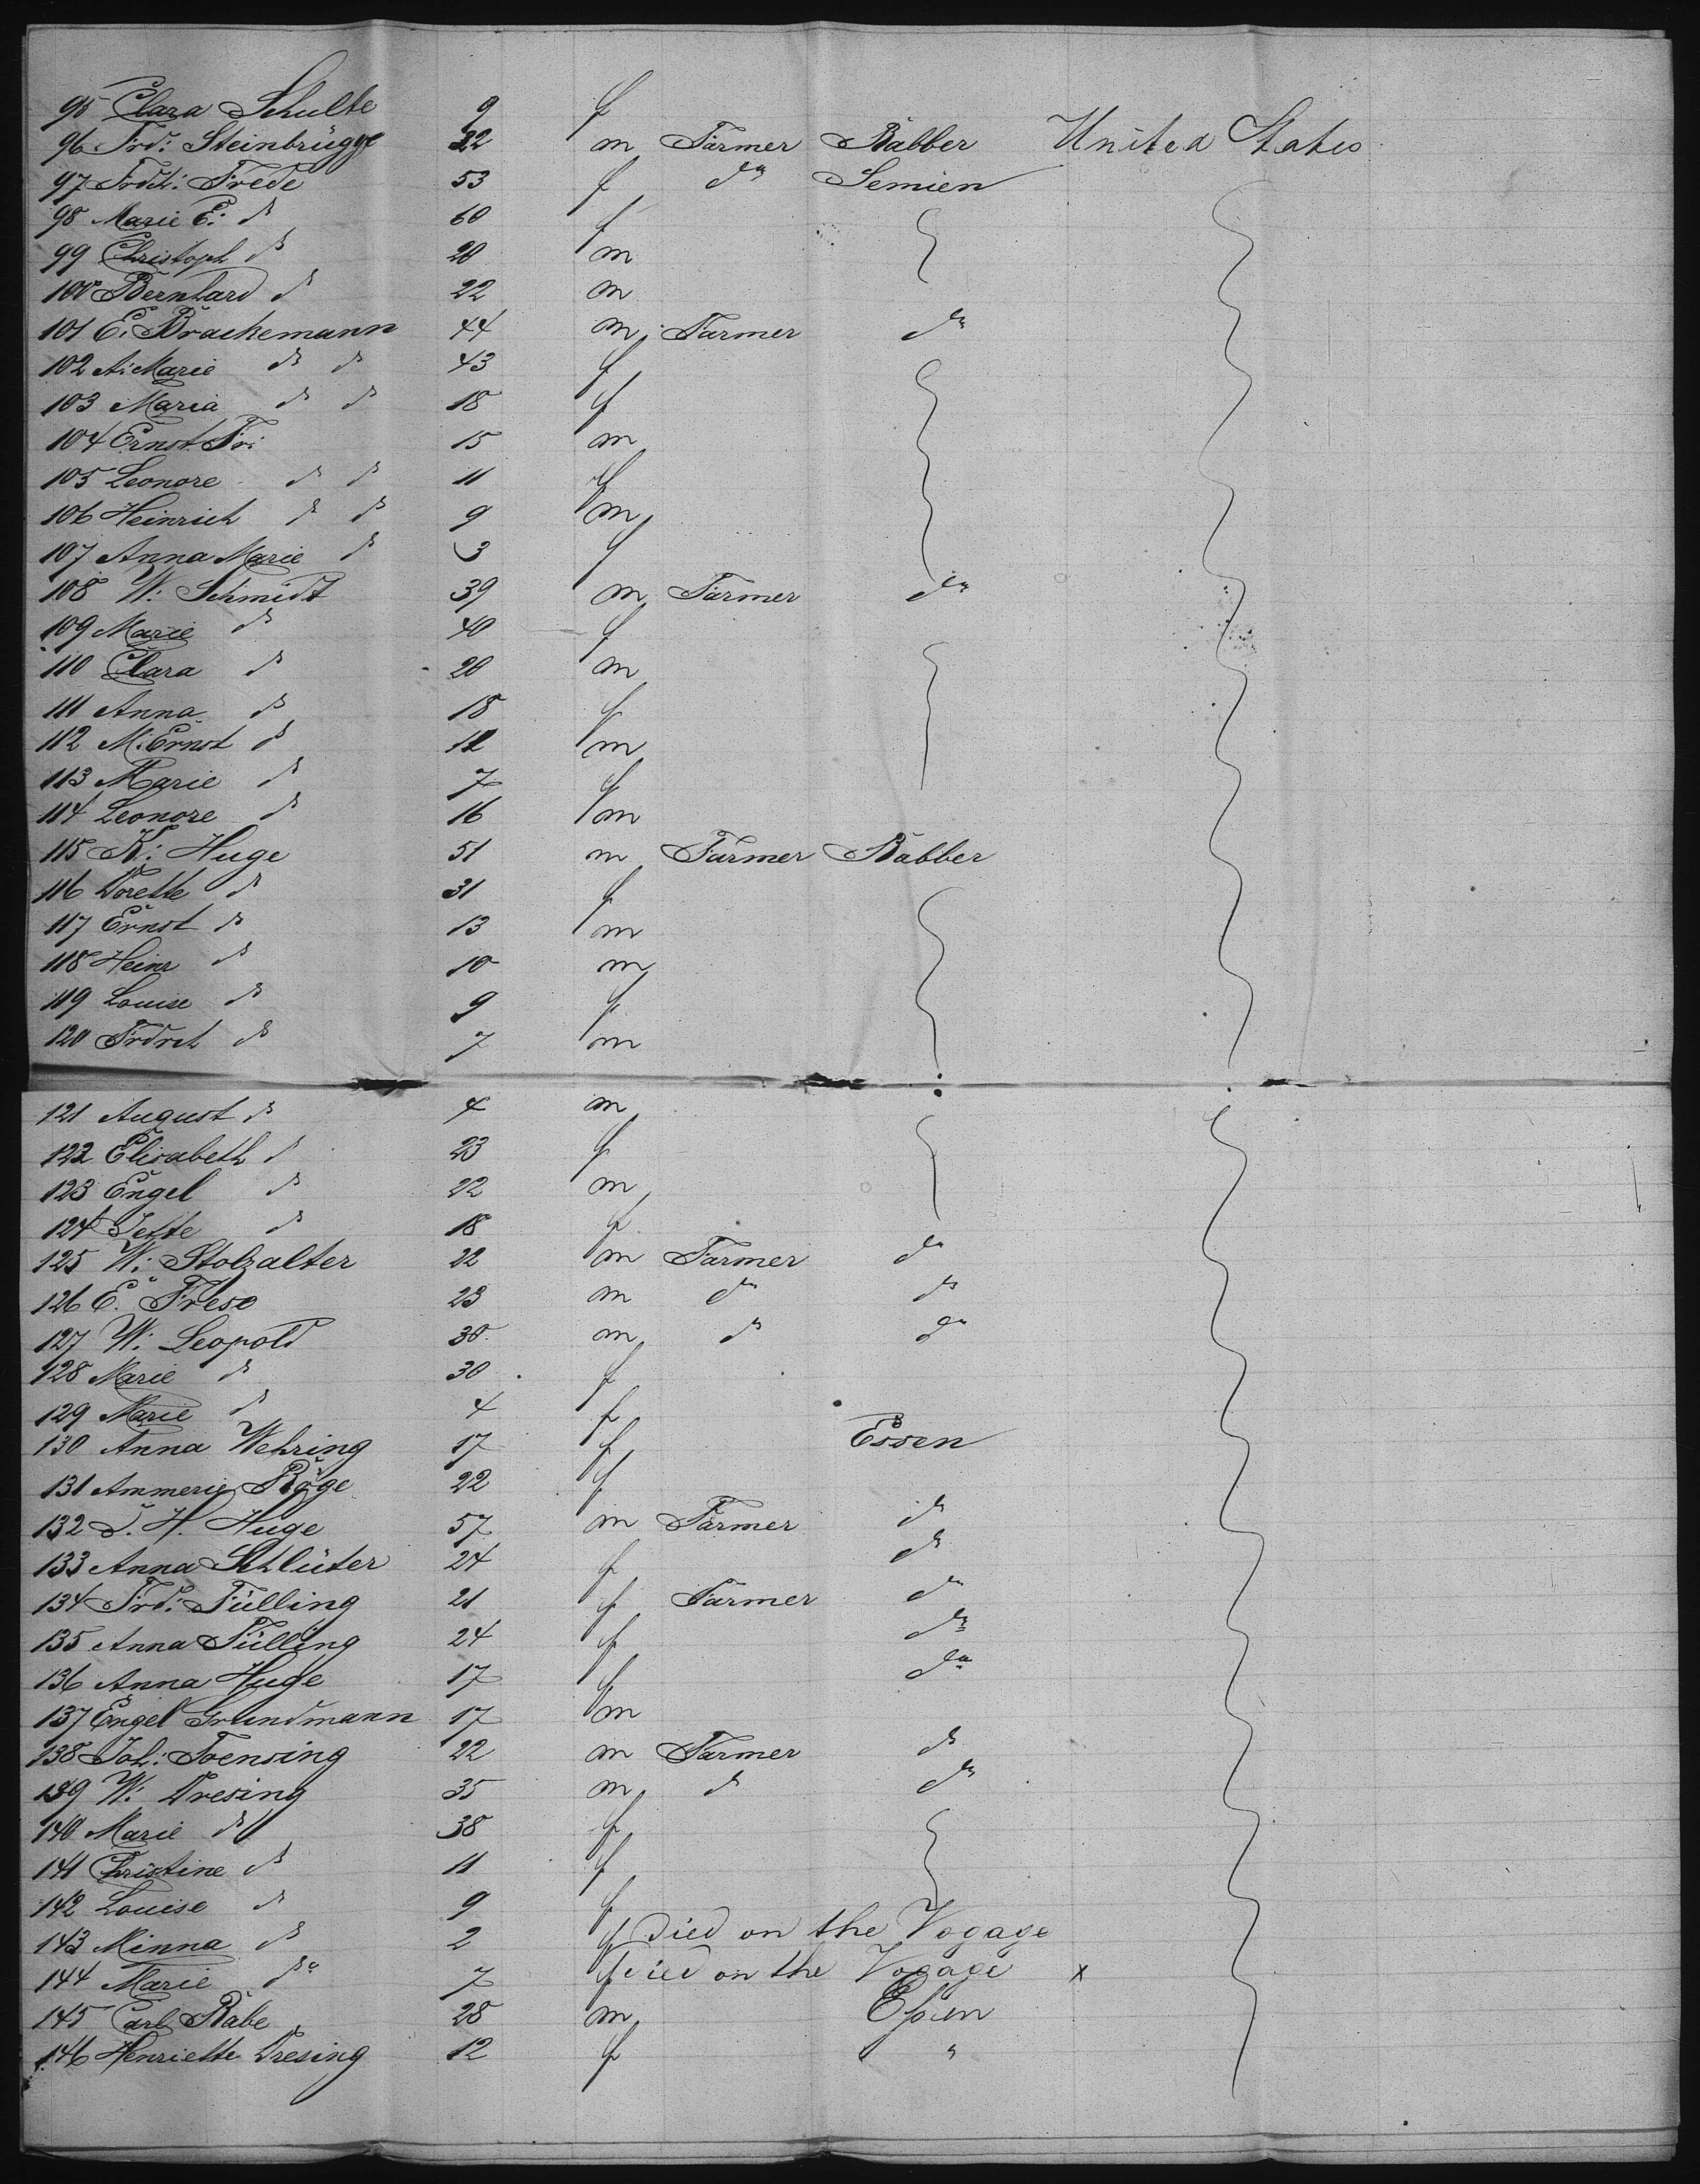 95 Clara Schulte 9 f
96 Frd: Steinbrügge 22 m Farmer Rabber United States
97 Frdch: Frede 53 f do Semien
98 Marie E: do 60 f
99 Christoph do 20 m
100 Bernhard do 22 m
101 E. Brackemann 44 m Farmer do
102 A: Marie do do 43 f
103 Maria do do 18 f
104 Ernst Fr: 15 m
105 Leonore do do 11 f
106 Heinrich do do 9 m
107 Anna Marie do 3 f
108 W: Schmidt 39 m Farmer do
109 Marie do 40 f
110 Clara do 20 m
111 Anna do 18 f
112 M: Ernst do 12 m
113 Marie do 7 f
114 Leonore do 16 m
115 K: Huge 51 m Farmer Rabber
116 Dorette do 31 f
117 Ernst do 13 m
118 Heinr do 10 m
119 Louise do 9 f
120 Frdrch do 7 m
121 August do 4 m
122 Elisabeth do 23 f
123 Engel do 22 m
124 Jette do 18 f
125 W: Stolzalter 22 m Farmer do
126 E. Frese 23 m do do
127 W: Leopold 30 m do do
128 Marie do 30 f
129 Marie do 4 f
130 Anna Wehring 17 f Essen
131 Ammerie Röge 22 f
132 J. H. Huge 57 m Farmer do
133 Anna Schlüter 24 f do
134 Frd: Fülling 21 f Farmer do
135 Anna Fülling 24 f do
136 Anna Huge 17 f do
137 Engel Grundmann 17 m
138 Joh: Toensing 22 m Farmer do
139 W: Dresing 35 m do do
140 Marie do 38 f
141 Christine do 11 f
142 Louise do 9 f
143 Minna do 2 f Died on the Vogage
144 Marie do 7 f died on the Vogage x
145 Carl Rabe 28 m Essen
146 Henriette Dresing 12 f "